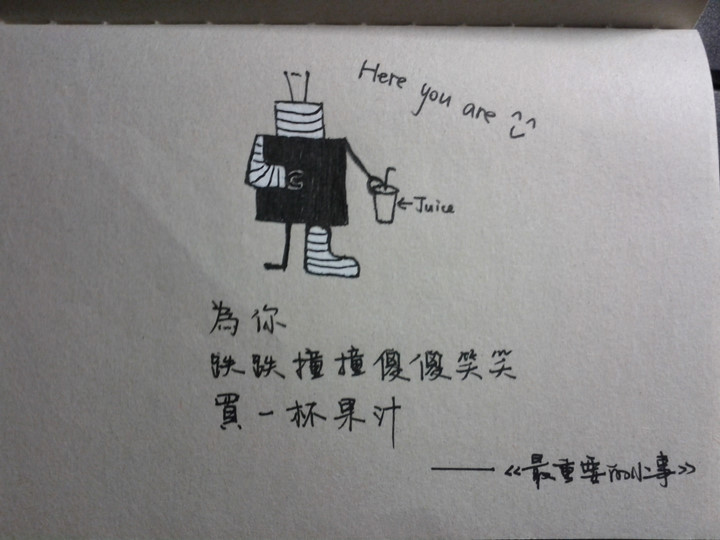 Here you are
←Juice
為你
跌跌撞撞傻傻笑笑
買一杯果汁
——《最重要的小事》